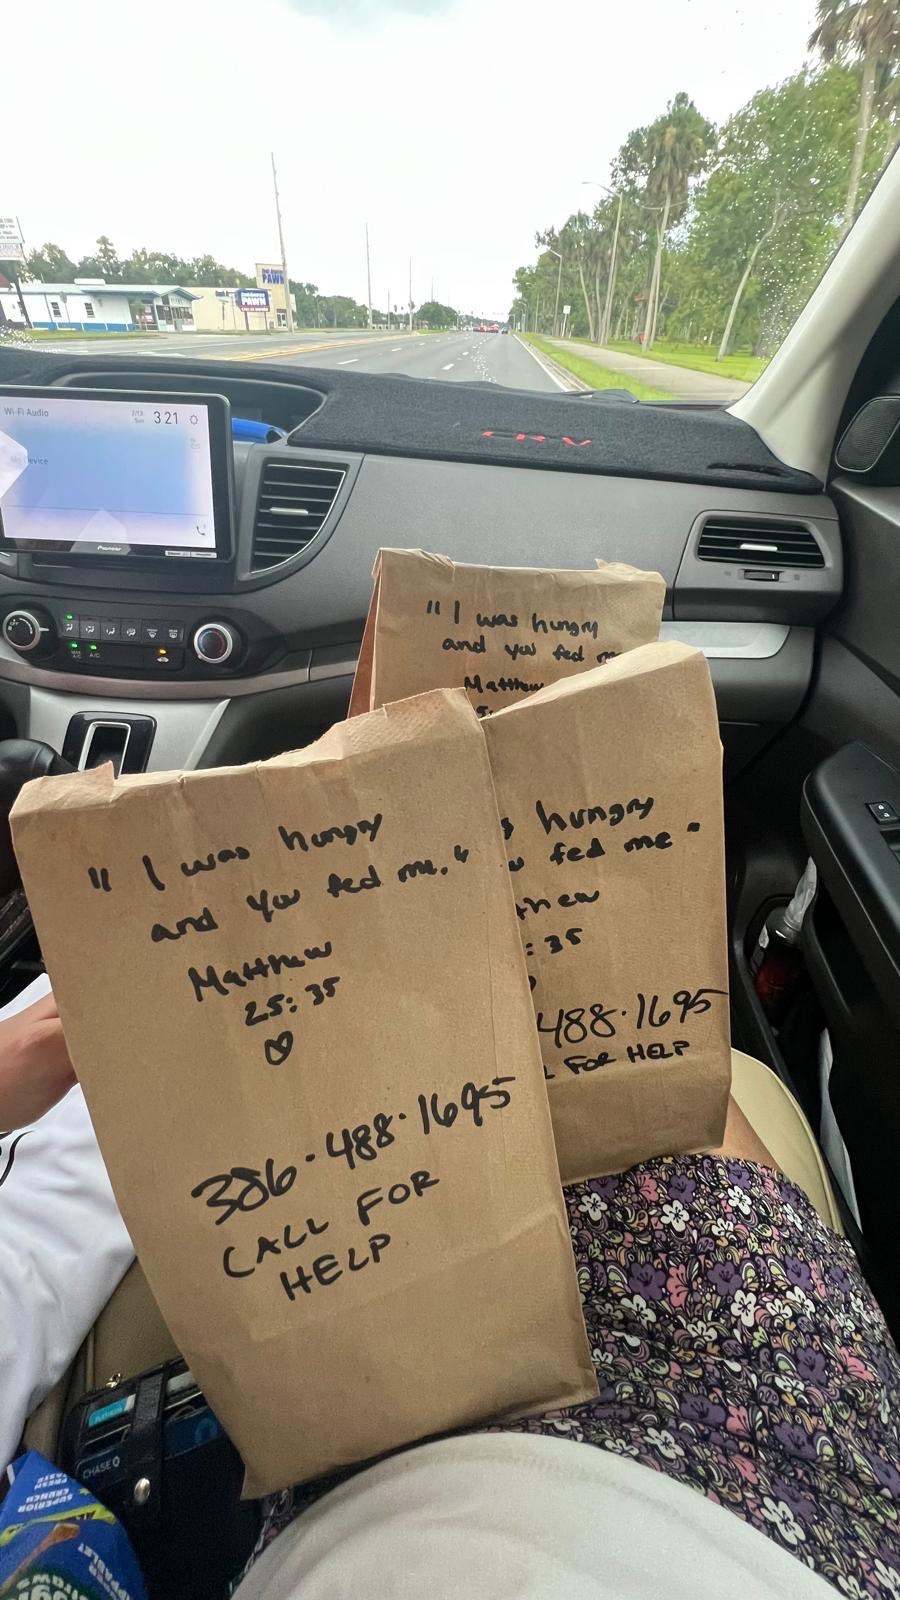 PAWN
PAWN
Wi-Fi Audio
7/13
Sun
3 21
No Device
Pioneer
CR-V
OFF
A/C
" I was hungry
and you fed m
Matthew
" I was hungry
and you fed me."
Matthew
25:35
386·488·1695
CALL FOR
HELP
hungry
fed me "
thew
: 35
488·1695
L FOR HELP
CHASE
FRESH
TASTE
SUPERIOR
CRUNCH